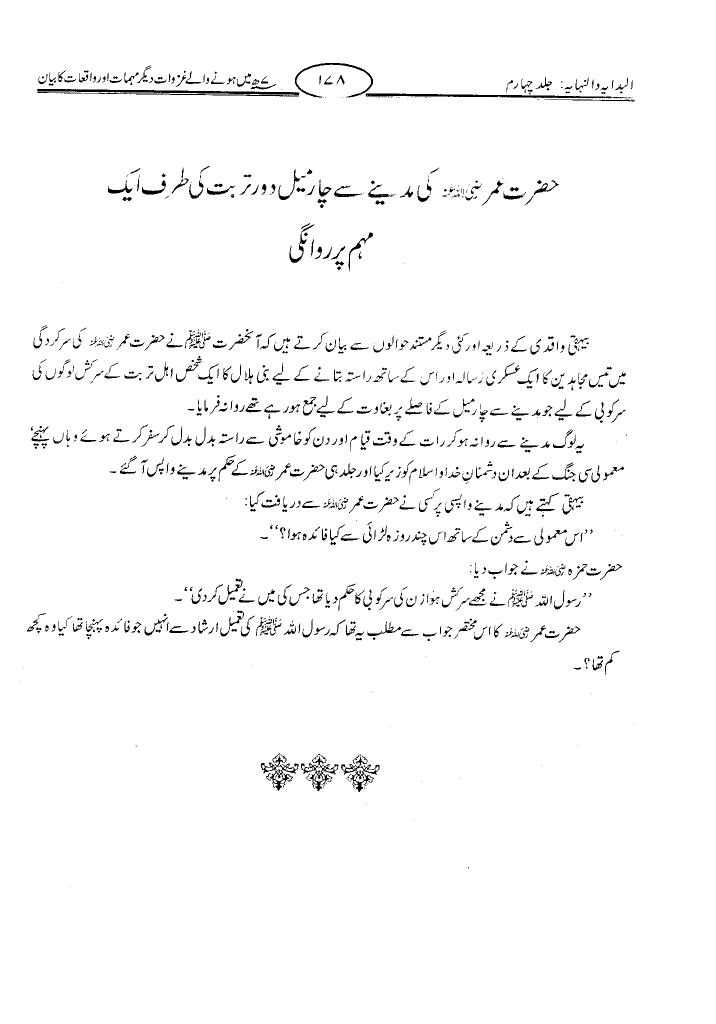 البدایہ والنہایہ: جلد چہارم ۱۷۸ ۷ھ میں ہونے والے غزوات دیگر مہمات اور واقعات کا بیان
حضرت عمر رضی اللہ عنہ کی مدینے سے چار میل دور تربت کی طرف ایک
مہم پر روانگی
بیہقی واقدی کے ذریعہ اور کئی دیگر مستند حوالوں سے بیان کرتے ہیں کہ آنحضرت ﷺ نے حضرت عمر رضی اللہ عنہ کی سرکردگی
میں تیس مجاہدین کا ایک عسکری رسالہ اور اس کے ساتھ راستہ بتانے کے لیے بنی ہلال کا ایک شخص اہل تربت کے سرکش لوگوں کی
سرکوبی کے لیے جو مدینے سے چار میل کے فاصلے پر بغاوت کے لیے جمع ہو رہے تھے روانہ فرمایا۔
یہ لوگ مدینے سے روانہ ہو کر رات کے وقت قیام اور دن کو خاموشی سے راستہ بدل بدل کر سفر کرتے ہوئے وہاں پہنچے'
معمولی سی جنگ کے بعد ان دشمنان خدا و اسلام کو زیر کیا اور جلد ہی حضرت عمر رضی اللہ عنہ کے حکم پر مدینے واپس آ گئے۔
بیہقی کہتے ہیں کہ مدینے واپسی پر کسی نے حضرت عمر رضی اللہ عنہ سے دریافت کیا:
''اس معمولی سے دشمن کے ساتھ اس چند روزہ لڑائی سے کیا فائدہ ہوا؟''۔
حضرت حمزہ رضی اللہ عنہ نے جواب دیا:
''رسول اللہ ﷺ نے مجھے سرکش ہوازن کی سرکوبی کا حکم دیا تھا جس کی میں نے تعمیل کر دی''۔
حضرت عمر رضی اللہ عنہ کا اس مختصر جواب سے مطلب یہ تھا کہ رسول اللہ ﷺ کی تعمیل ارشاد سے انہیں جو فائدہ پہنچا تھا کیا وہ کچھ
کم تھا؟۔